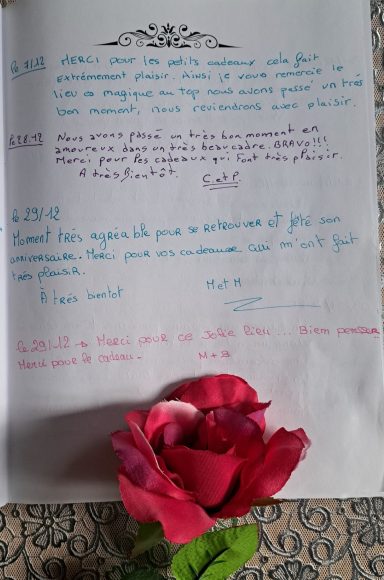 le 7/12 MERCI pour les petits cadeaux cela fait
Extrémement plaisir. Ainsi je vous remercie le
lieu es magique au top nous avons passé un trés
bon moment, nous reviendrons avec plaisir.
Le 28.12 Nous avons passé un très bon moment en
amoureux dans un très beau cadre. BRAVO!!!
Merci pour les cadeaux qui font très plaisir.
A très Bientôt. C. et P.
le 29/12
Moment trés agréable pour se retrouver et fêté son
anniversaire. Merci pour vos cadeaux qui m'ont fait
trés plaisir.
À trés bientot M et M
le 29/12 → Merci pour ce Jolie lieu ... Biem penser
Merci pour le cadeau - M + B